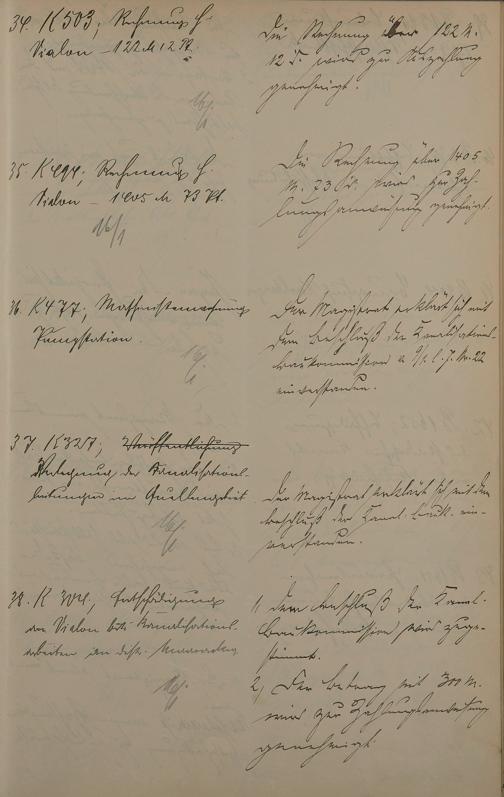 34. K 503, Rechnung H.
Vialon - 122 M 12 Pf.
16/1
Die Rechnung über 122 M.
12 Pf. wird zur Auszahlung
genehmigt.
35. K 494, Rechnung H.
Vialon - 1405 M 73 Pf.
16/1
Die Rechnung über 1405
M. 73 Pf. wird zur Zah-
lungsanweisung genehmigt.
36. K 477,
Pumpstation.
Der Magistrat erklärt sich mit
dem Beschluß der Kanalisations-
baukommission v. 9/1. l. J. Nr. 22
einverstanden.
37. K 327, Veröffentlichung
Verlegung der Kanalisations-
leitungen im Quellengebiet
16/1
Der Magistrat erklärt sich mit dem
Beschluß der Kanal. Bauk. ein-
verstanden.
38. K 304, Entschädigung
an Vialon betr. Kanalisations-
arbeiten in der
16/1
1, Dem Beschluß der Kanal-
baukommission wird zuge-
stimmt.
2, Der Betrag mit 300 M.
wird zur Zahlungsanweisung
genehmigt.